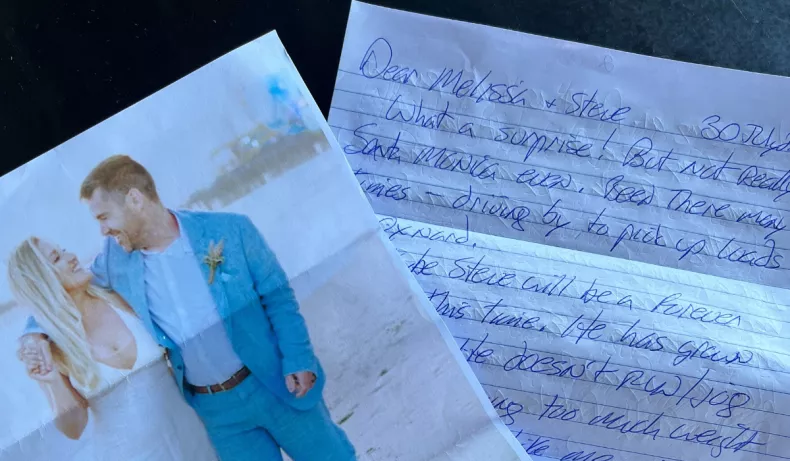 Dear Melissa + Steve 30 July
What a surprise! But not really
Santa Monica even. Been There many
times – driving by to pick up loads
Oxnard.
be Steve will be a forever
this time. He has grown
He doesn't run/jog
too much weight
like me